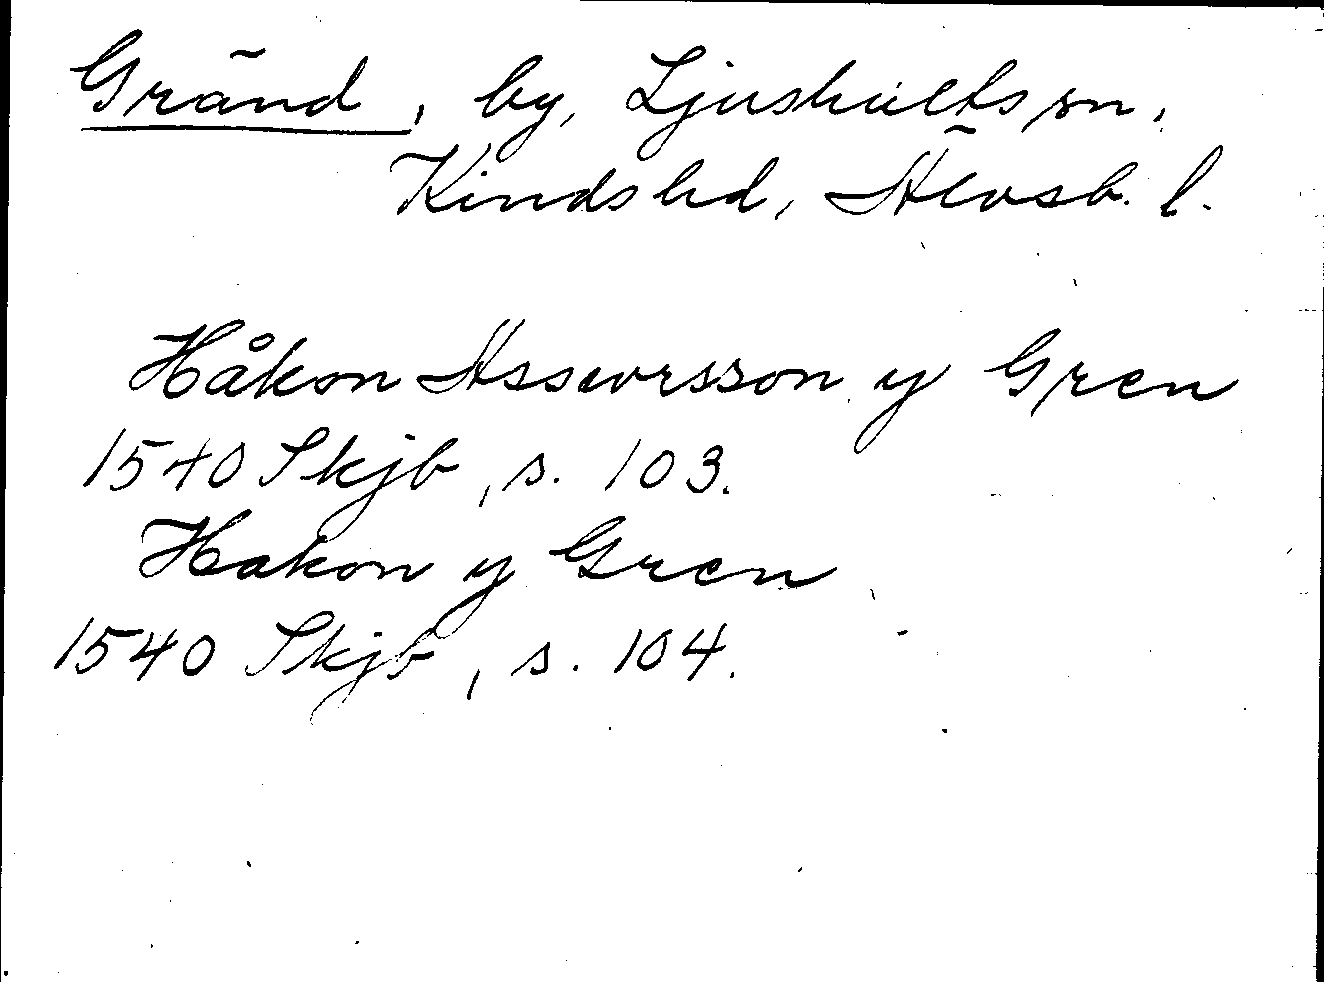 Gränd, by, Ljushults sn,
Kinds hd, Älvsb. l.
Håkon Assworsson y Gren
1540 Skjb, s. 103.
Hakon y Gren
1540 Skjb, s. 104.